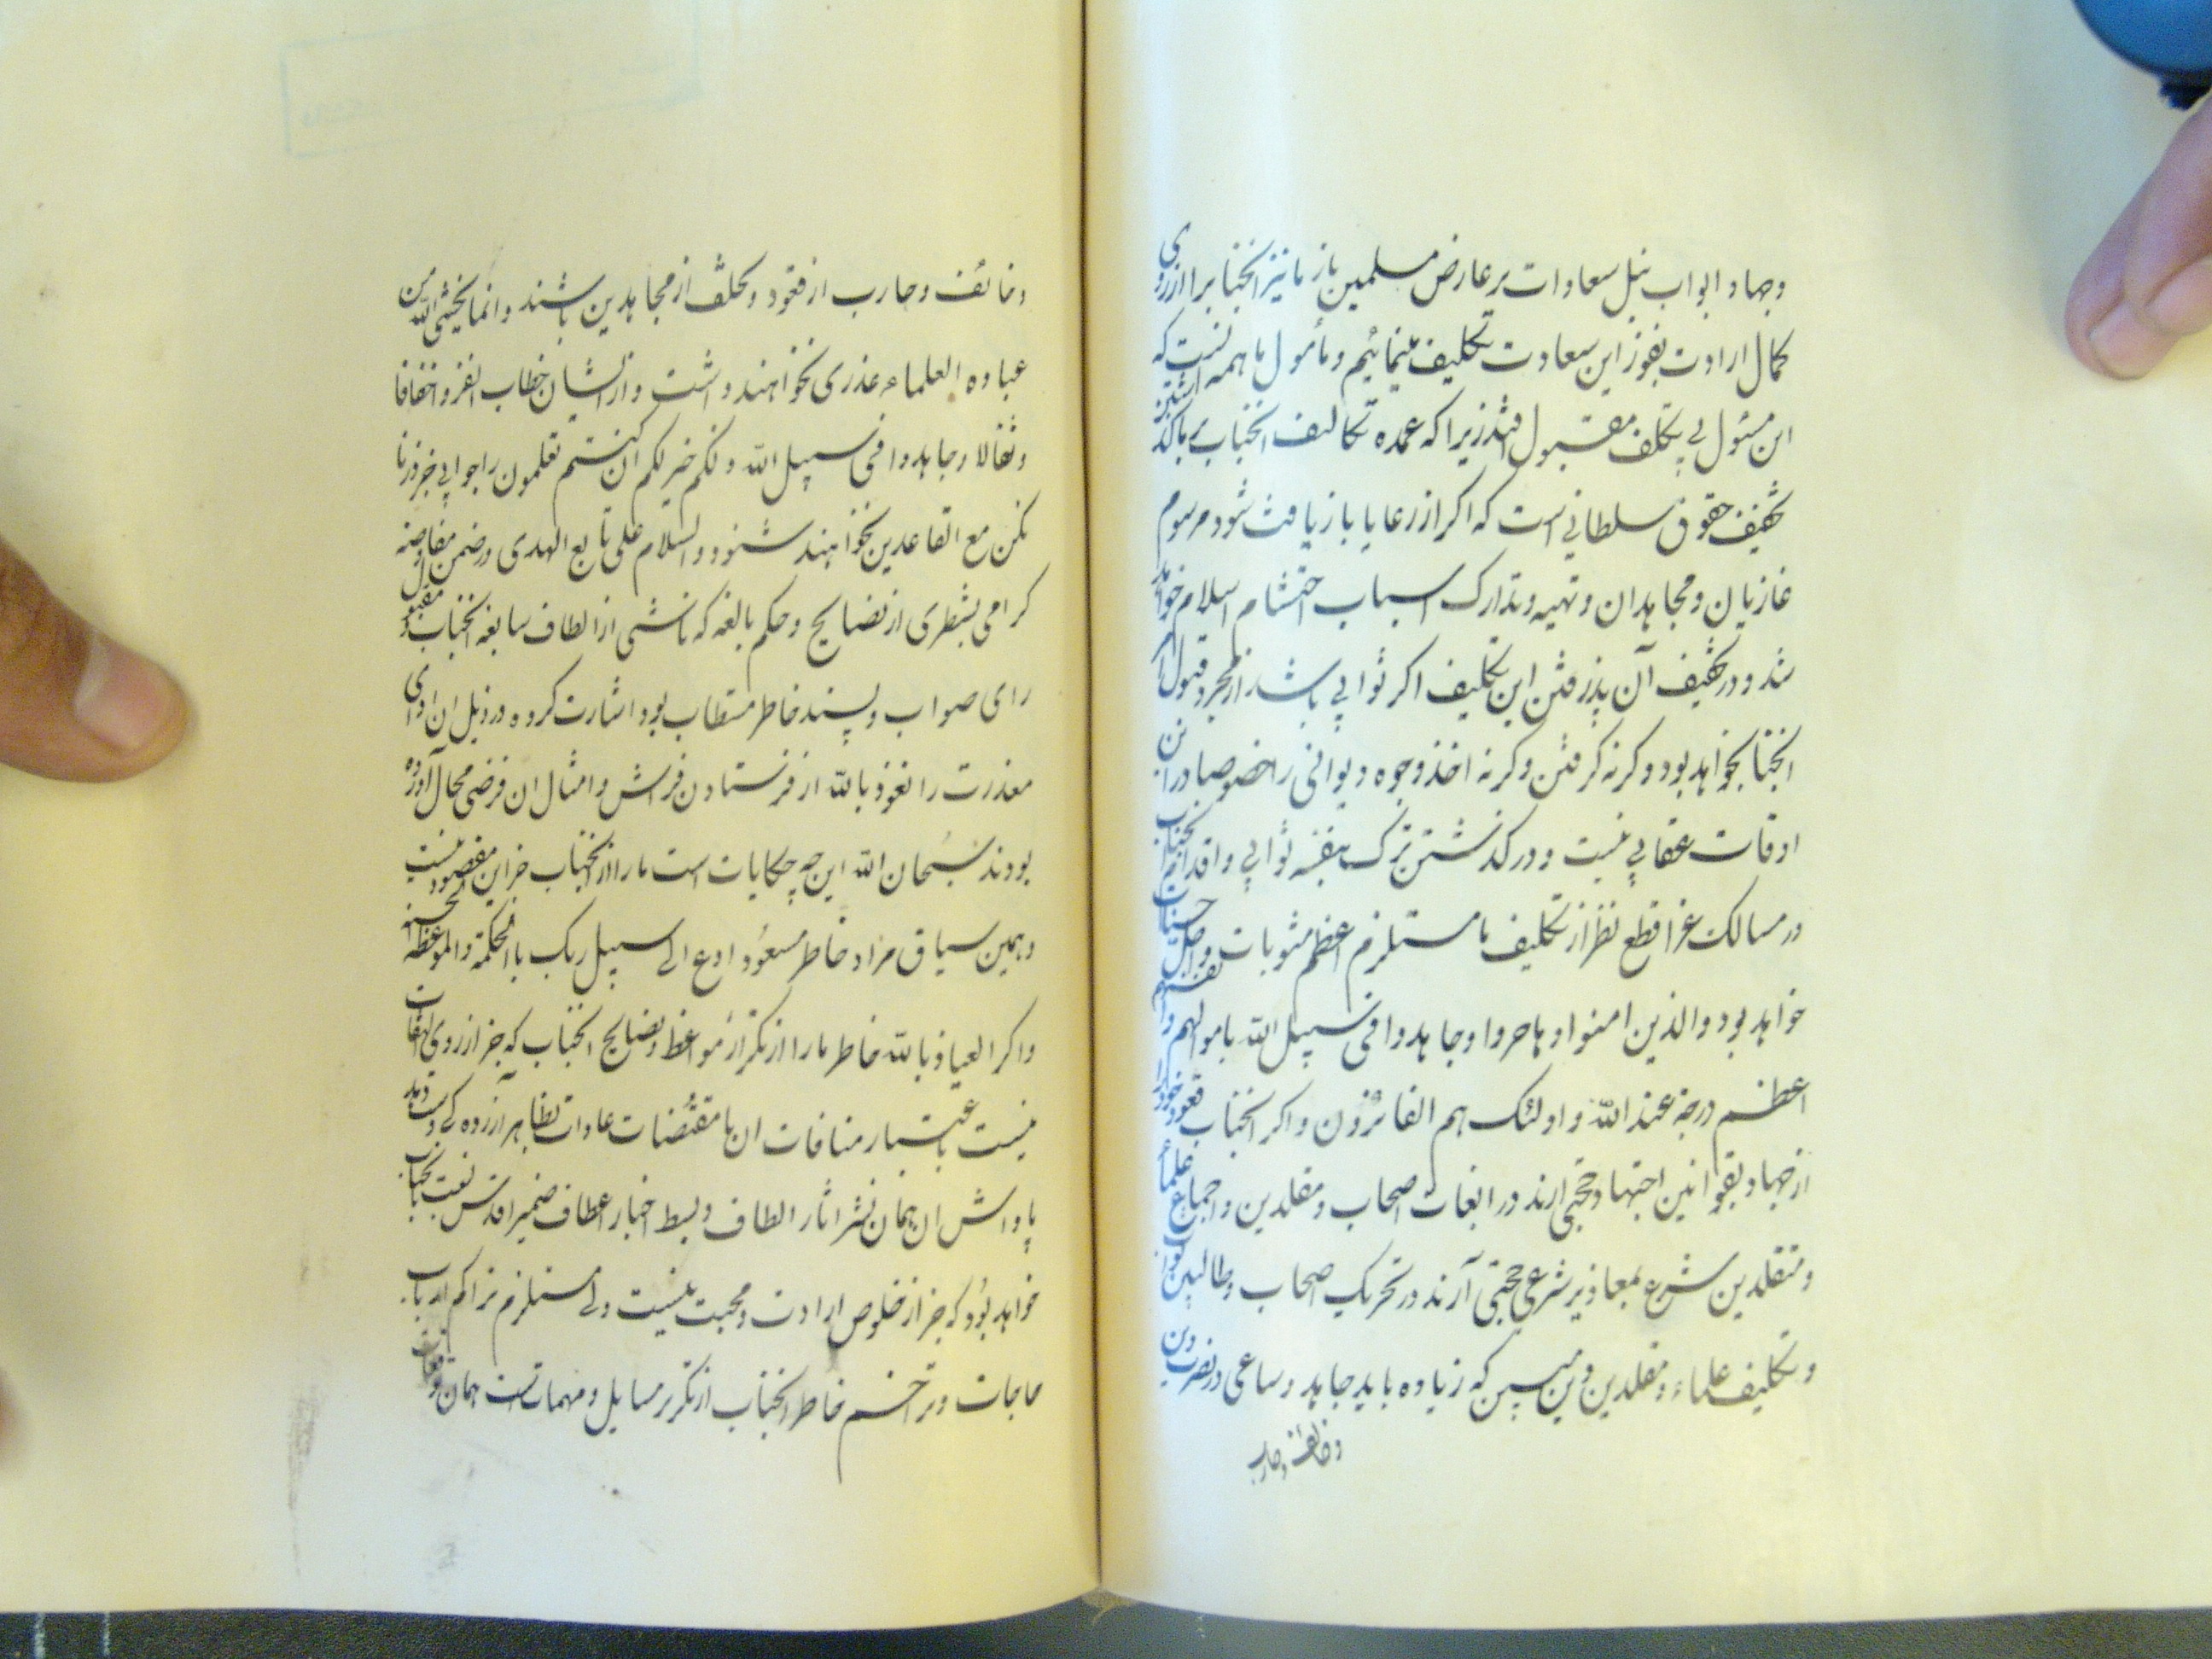 وجهاد ابواب نیل سعادات بر عارض مسلمین باز ما نیز آنجناب را از روی
کمال ارادت بفوز این سعادت تکلیف مینمائیم و مأمول ما همه اینست که
این مسئول بی تکلف مقبول افتد زیرا که عمده تکالیف آنجناب بر ما
تخفیف حقوق سلطانی است که اگر از رعایا بازیافت شود مرسوم
غازیان و مجاهدان و تهیه و تدارک اسباب احتشام اسلام خواهد
شد و در تخفیف آن پذیرفتن این تکلیف اگر ثوابی باشد از مجرد قبول
آنجناب خواهد بود وگرنه گرفتن وگرنه اخذ وجوه دیوانی را خصوصا در این
اوقات عقابی نیست و در گذشتن ترک بنفسه ثوابی و اقدام آنجناب
در مسالک غزا قطع نظر از تکلیف ما مستلزم اعظم مثوبات و اجل حسنات
خواهد بود والذین امنوا وهاجروا وجاهدوا فی سبیل الله باموالهم وانفسهم
اعظم درجة عند الله و اولئک هم الفائزون و اگر آنجناب قعود خود را
از جهاد بقوانین اجتهاد حجتی ارند در اصحاب و مقلدین و اجماع علماء
و متقلدین شرع بمعاذیر شرعی حجتی آرند در تحریک اصحاب و طالبین
و تکلیف علماء و مقلدین دین مبین که زیاده باید جاهد و ساعی در نصرت دین
وخائف وهارب
وخائف وهارب از قعود و تخلف از مجاهدین باشند و انما یخشی الله من
عباده العلماء عذری نخواهند داشت و از ایشان خطاب انفروا خفافا
وثقالا وجاهدوا فی سبیل الله ذلکم خیر لکم ان کنتم تعلمون را جوابی جز ذرنا
نکن مع القاعدین نخواهند شنود والسلام علی تابع الهدی در ضمن مفاوضه
گرامی بشطری از نصایح و حکم بالغه که ناشی از الطاف سابغه آنجناب و مقبول
رای صواب و پسند خاطر مستطاب بود اشارت کرده در ذیل ان ادای
معذرت را نعوذ بالله از فرستادن فراش و امثال ان فرضی محال آورده
بودند سبحان الله این چه حکایات است ما را از آنجناب جز این مقصود نیست
و همین سیاق مراد خاطر مسعود ادع الی سبیل ربک بالحکمة والموعظة الحسنة
و اگر العیاذ بالله خاطر ما را از تکرار مواعظ و نصایح آنجناب که جز از روی
نیست باعتبار منافات ان با مقتضیات عادات بظاهر آزرده کی
پاداش ان همان نشر اثار الطاف و بسط اخبار اعطاف ضمیر اقدس نسبت بانجناب
خواهد بود که جز از خلوص ارادت و محبت نیست ولی مستلزم تراکم ارباب
حاجات و تزاحم خاطر آنجناب از تکریر مسایل و مهمات است همان